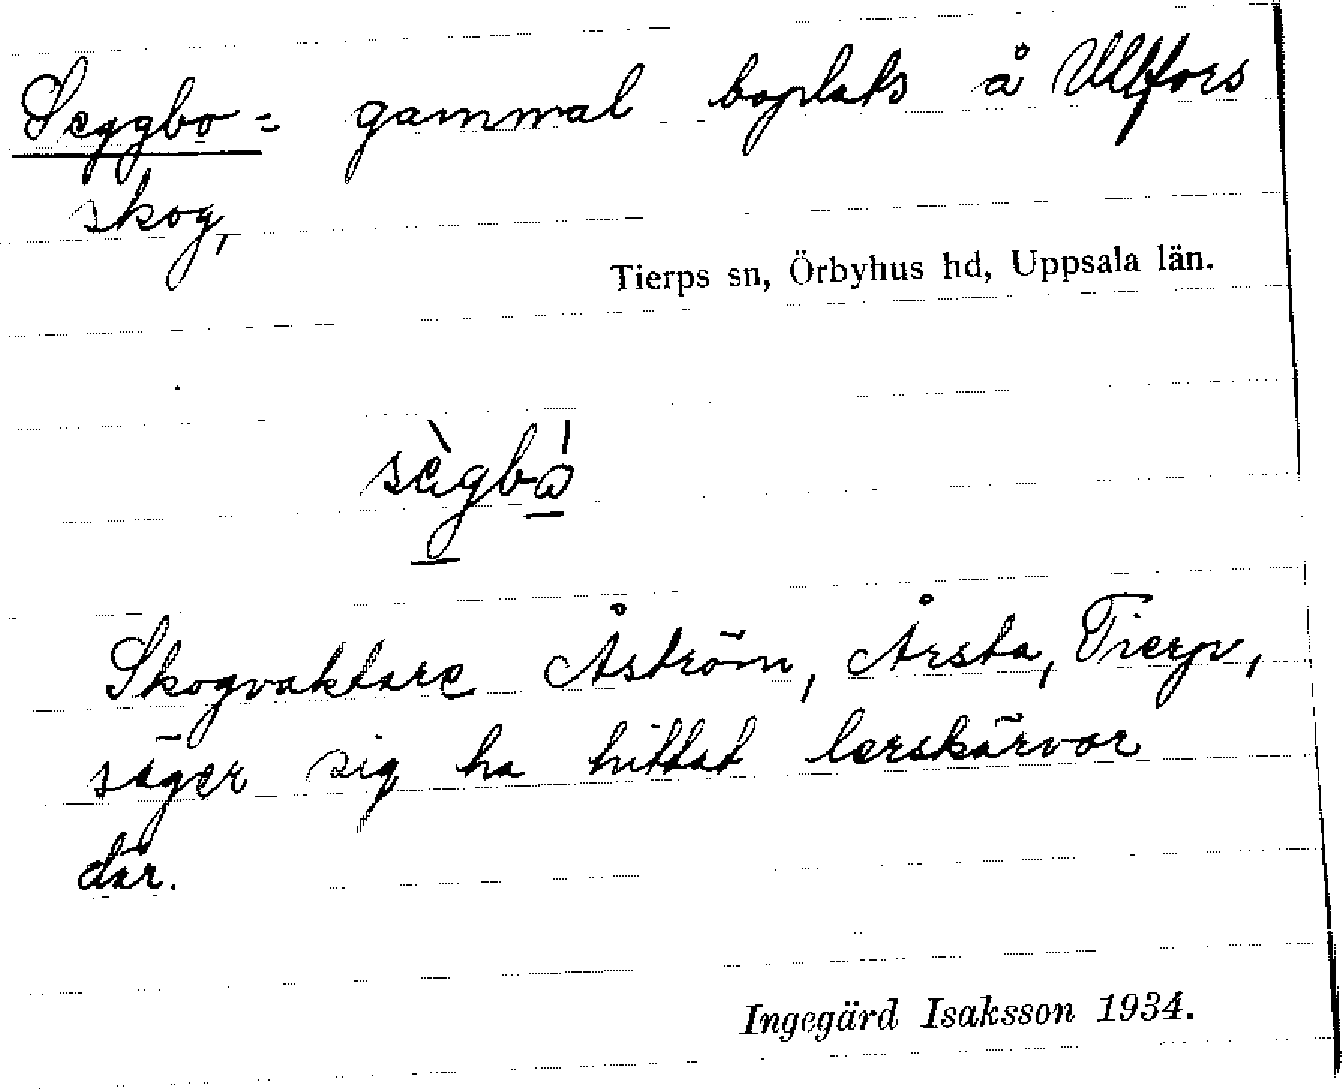 Seggbo = gammal boplats å Ullfors
skog,
Tierps sn, Örbyhus hd, Uppsala län.
sègbò
Skogvaktare Åström, Årsta, Tierp,
säger sig ha hittat lerskärvor
där.
Ingegärd Isaksson 1934.